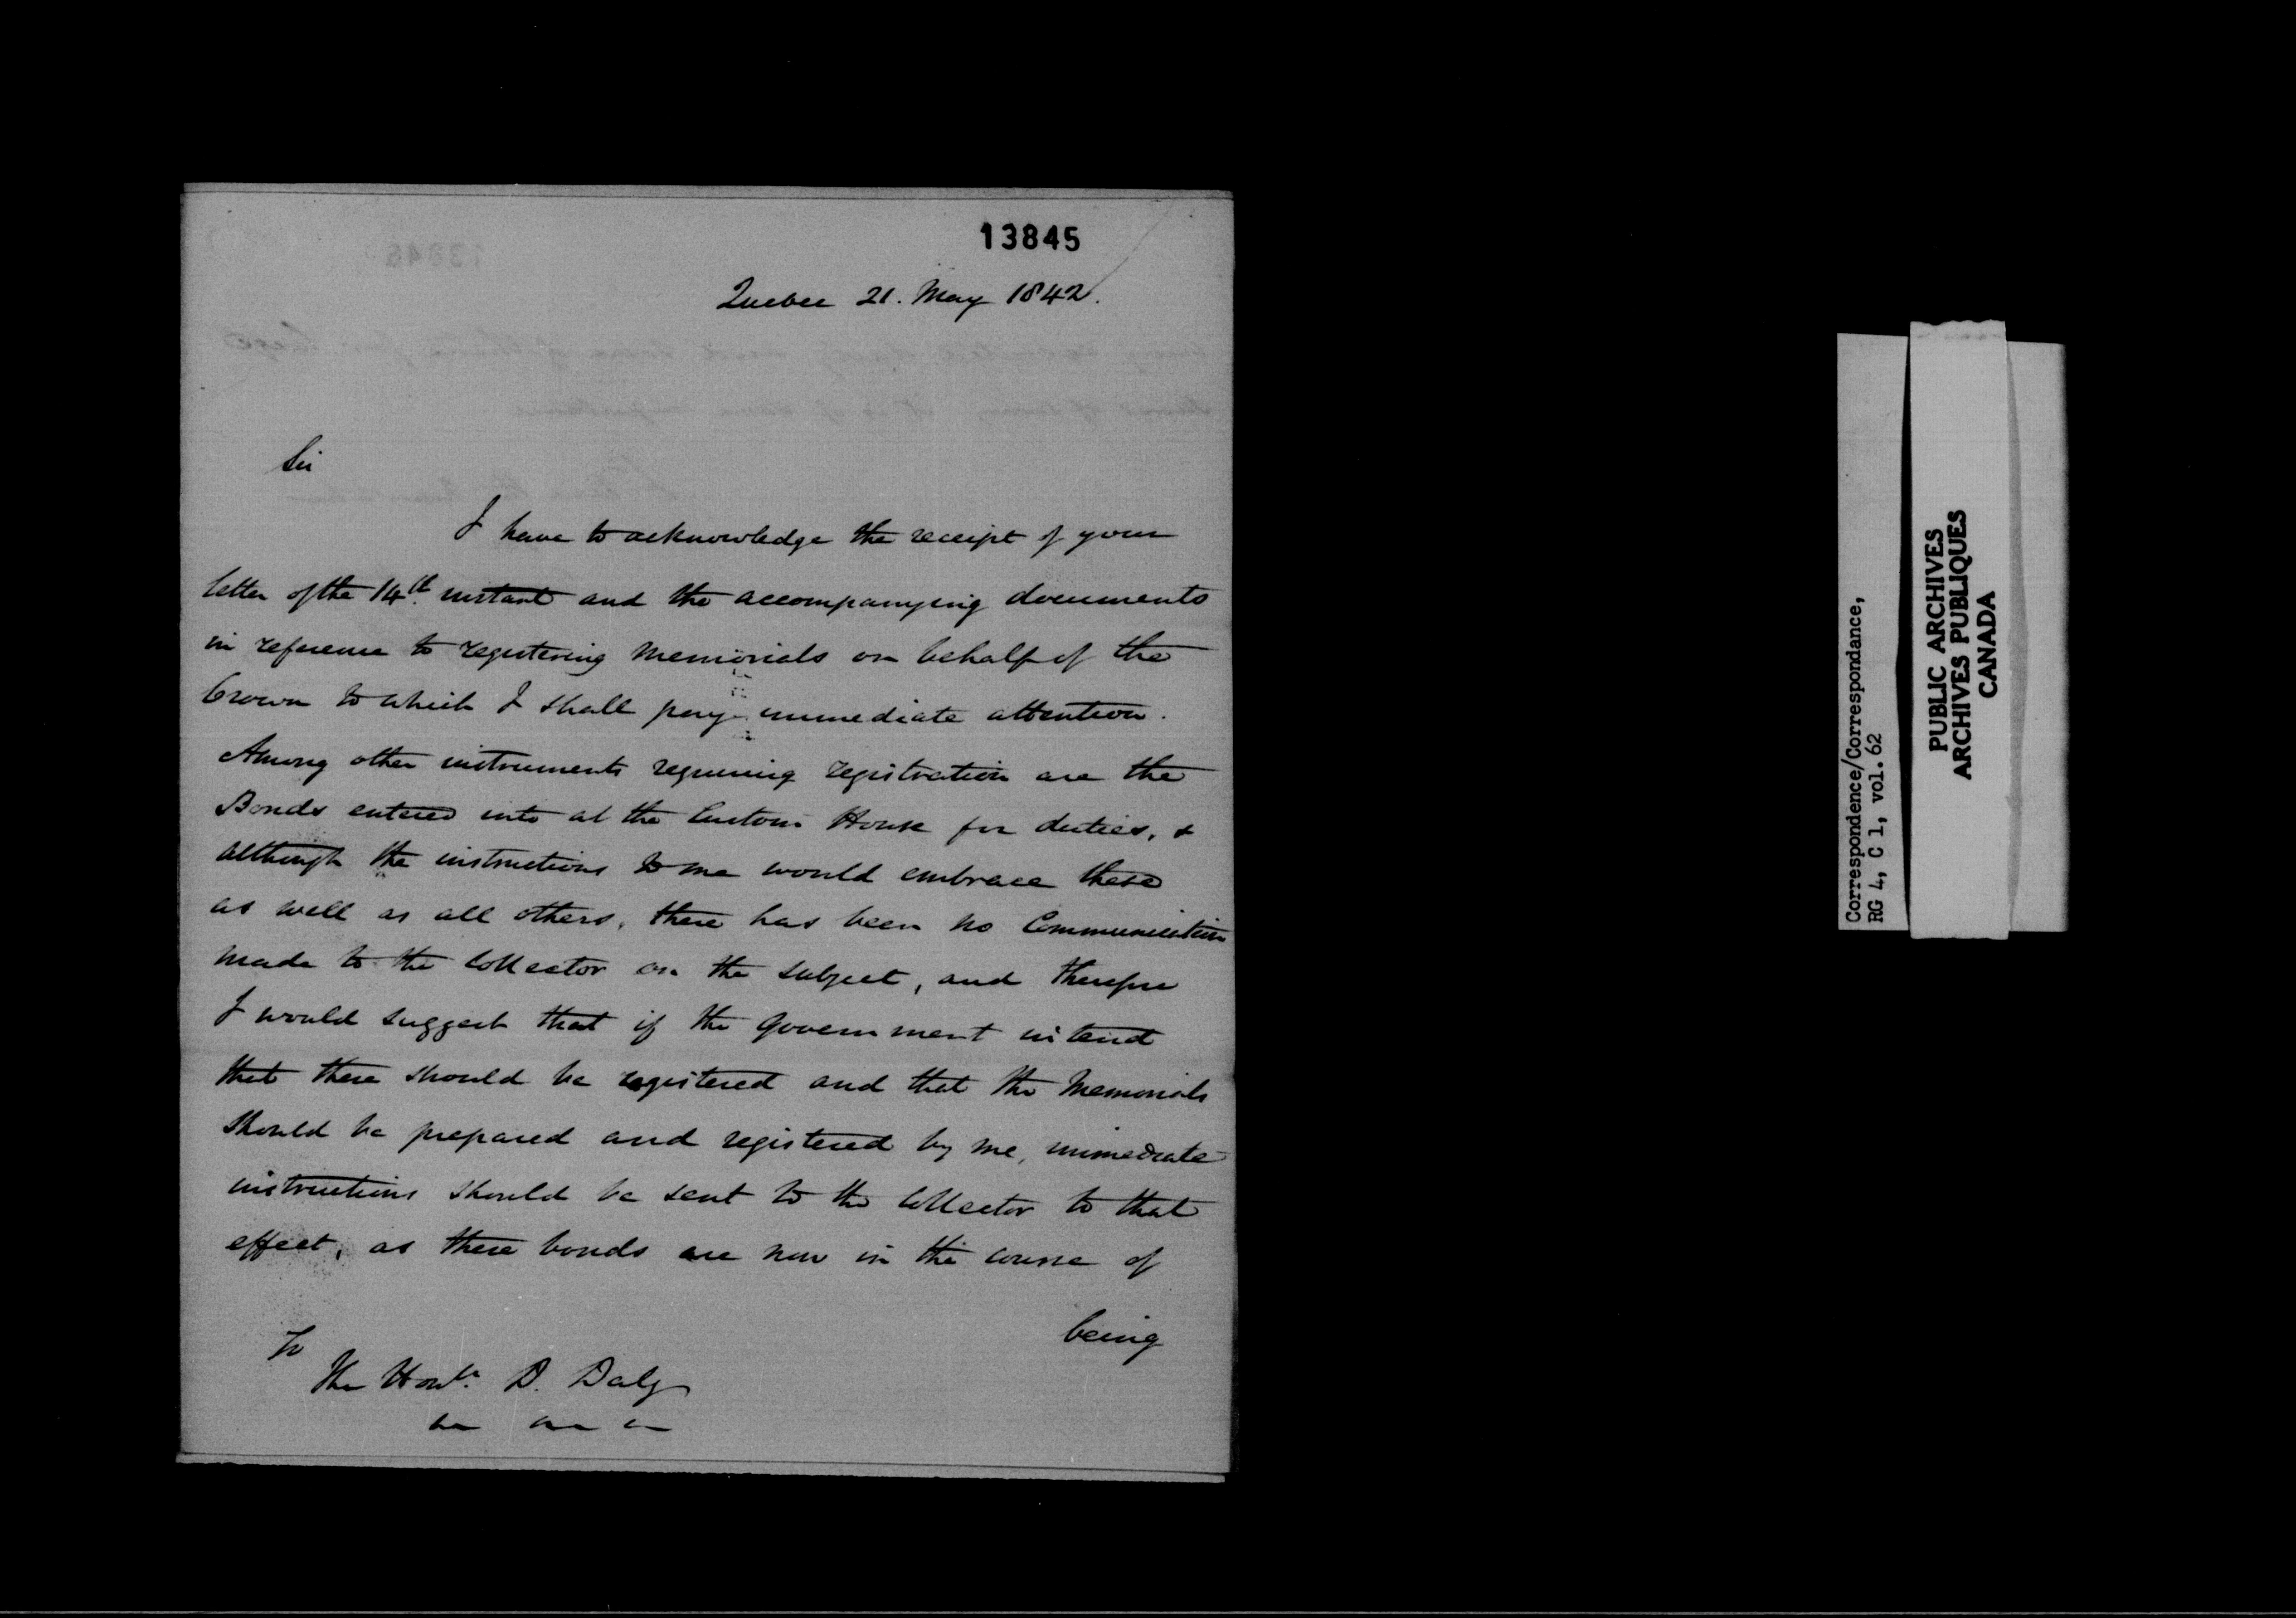 13845
Quebec 21. May 1842.
Sir
I have to acknowledge the receipt of your
letter of the 14th. instant and the accompanying documents
in reference to registering Memorials on behalf of the
Crown to which I shall pay immediate attention.
Among other instruments requiring registration are the
Bonds entered into at the Custom House for duties, &
although the instructions to me would embrace these
as well as all others, there has been no Communication
made to the Collector on the subject, and therefore
I would suggest that if the Government intend
that these should be registered and that the Memorials
should be prepared and registered by me, immediate
instructions should be sent to the Collector to that
effect, as these bonds are now in the course of
being
To
The Honble. D. Daly
Correspondence/Correspondance,
RG 4, C 1, vol. 62
PUBLIC ARCHIVES
ARCHIVES PUBLIQUES
CANADA